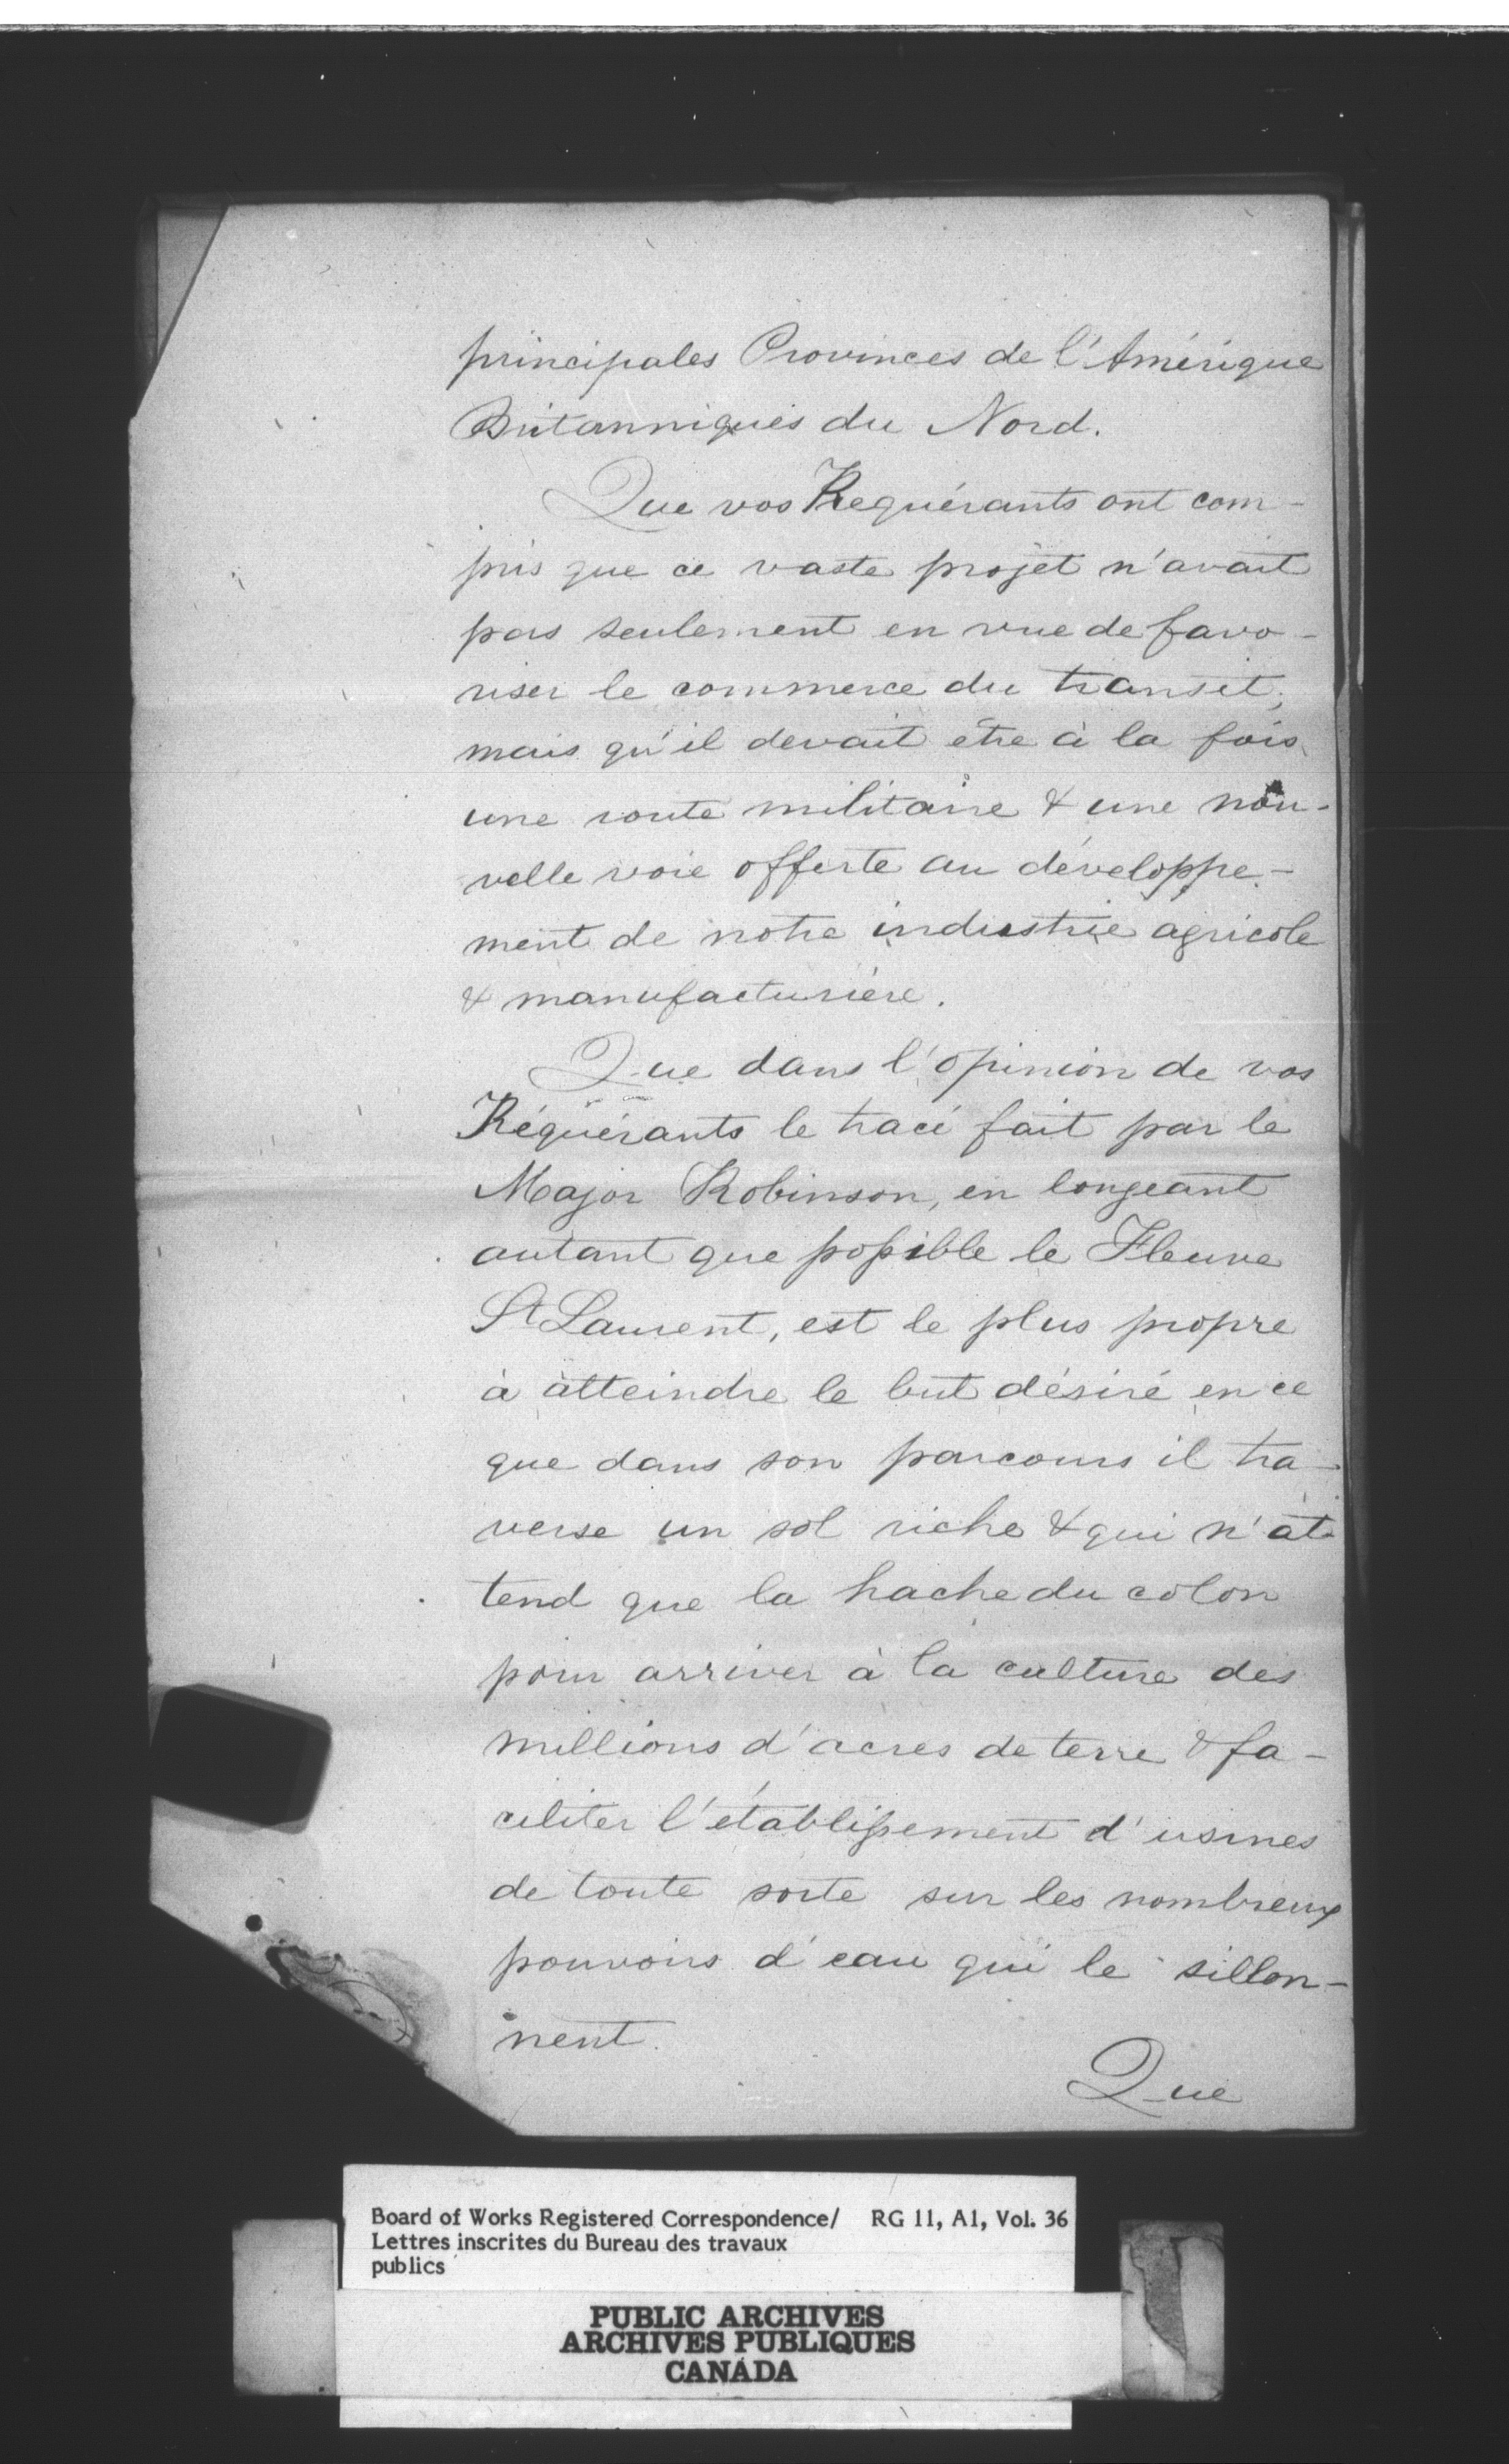 principales Provinces de l'Amérique
Britanniques du Nord.
Que vos Requérants ont com-
pris que ce vaste projet n'avait
pas seulement en vue de favo-
riser le commerce du transit;
mais qu'il devait être à la fois
une route militaire & une nou-
velle voie offerte au développe-
ment de notre industrie agricole
& manufacturière.
Que dans l'opinion de vos
Réquérants le tracé fait par le
Major Robinson, en longeant
autant que possible le Fleuve
St Laurent, est le plus propre
à atteindre le but désiré en ce
que dans son parcours il tra-
verse un sol riche & qui n'at-
tend que la hache du colon
pour arriver à la culture des
millions d'acres de terre & fa-
ciliter l'établissement d'usines
de toute sorte sur les nombreux
pouvoirs d'eau qui le sillon-
nent.
Que
Board of Works Registered Correspondence/ RG 11, A1, Vol. 36
Lettres inscrites du Bureau des travaux
publics
PUBLIC ARCHIVES
ARCHIVES PUBLIQUES
CANADA